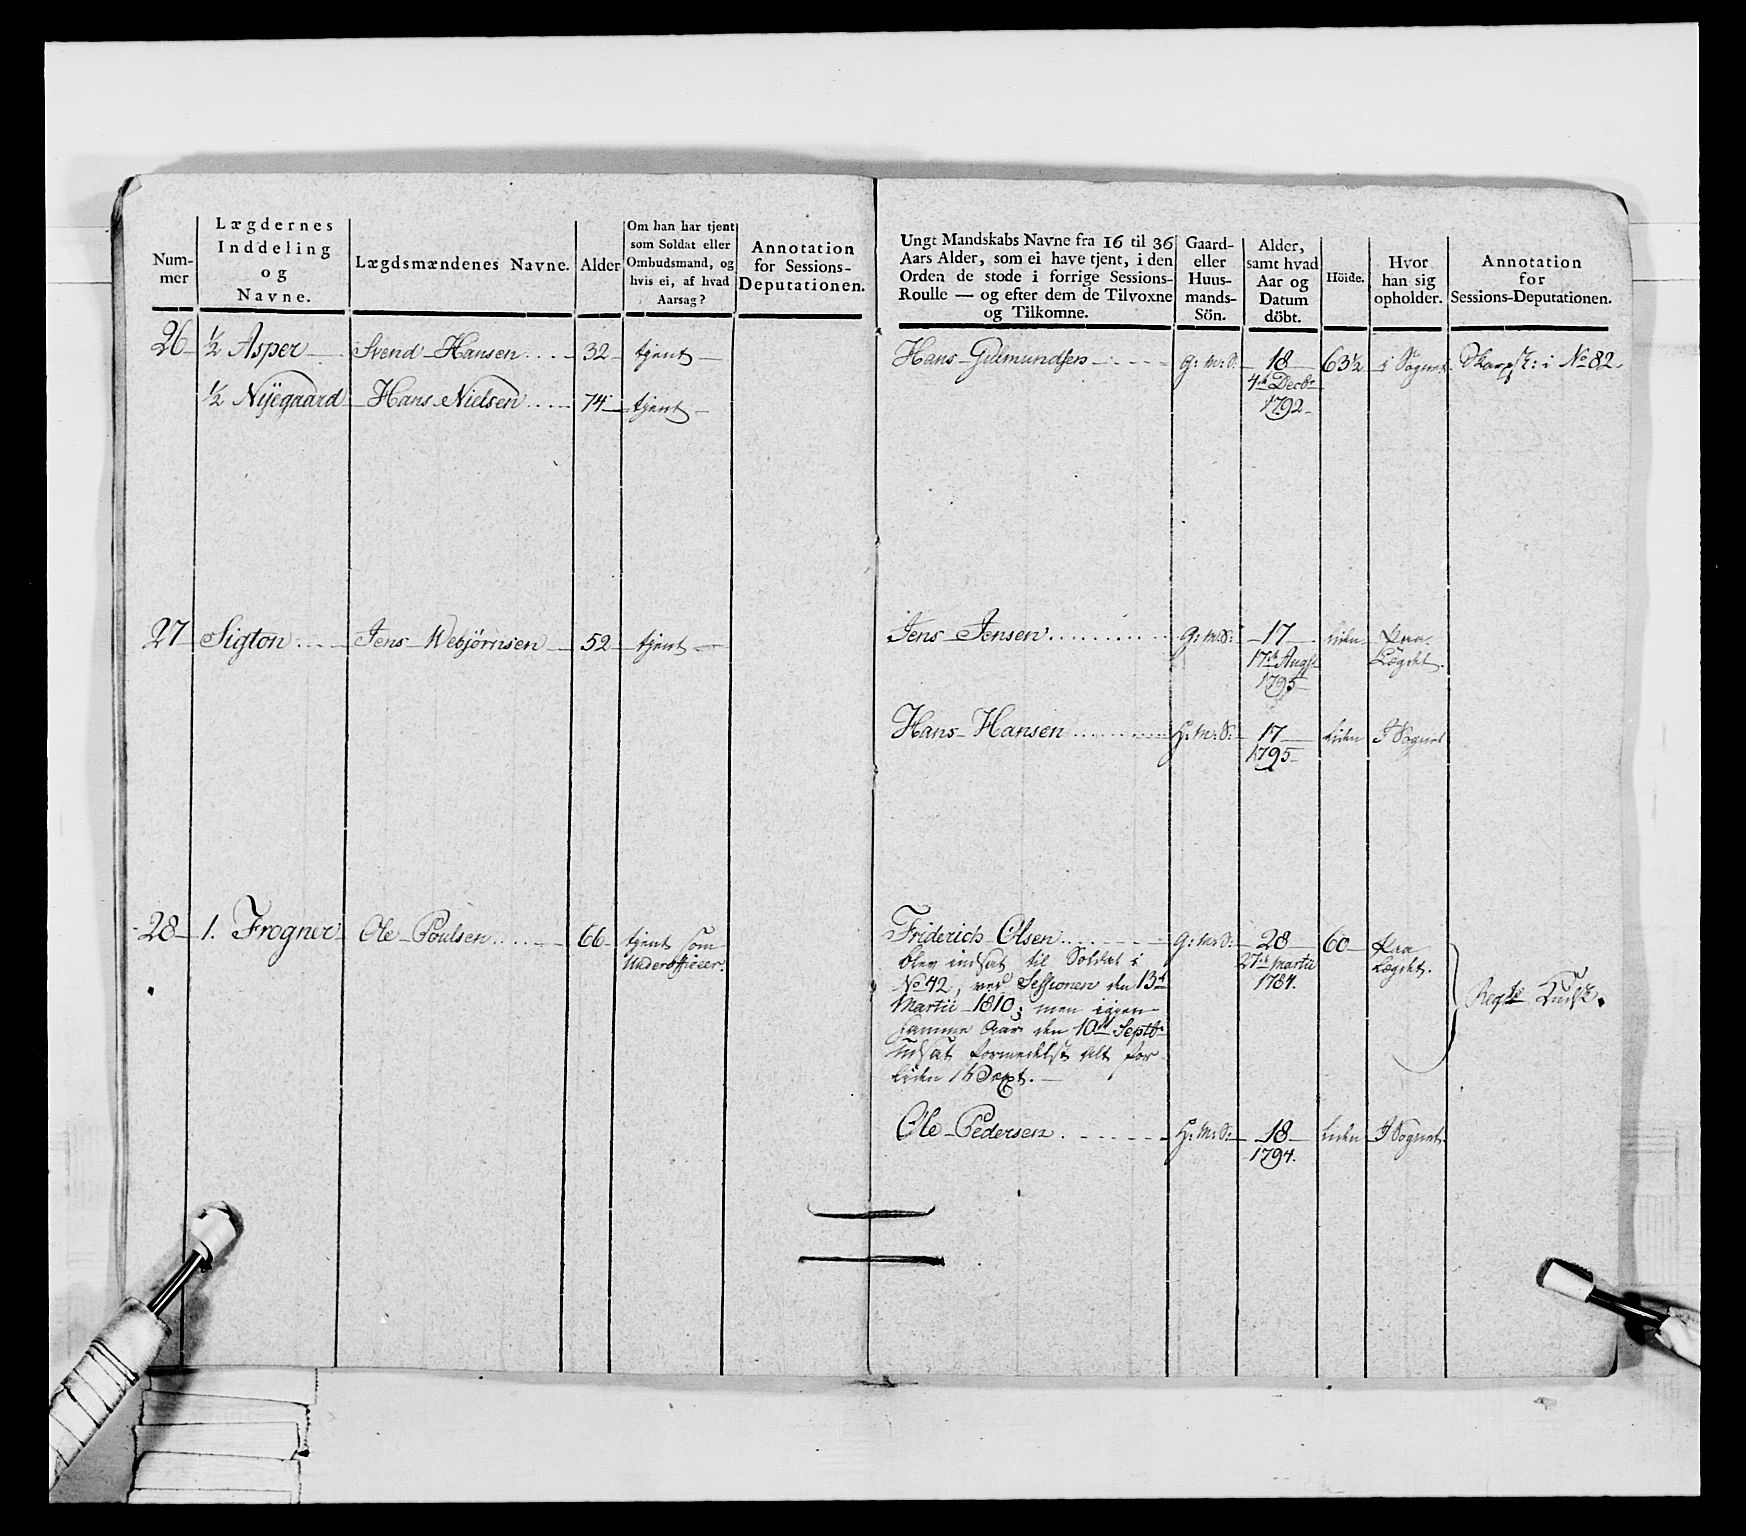 Num-
mer
Lægdernes
Inddeling
og
Navne.
Lægdsmændenes Navne.
Alder
Om han har tjent
som Soldat eller
Ombudsmand, og
hvis ei, af hvad
Aarsag?
Annotation
for Sessions-
Deputationen.
26 ½ Asper Svend Hansen 32 tjent
½ Nÿegaard Hans Nielsen 74 tjent
27 Sigton Jens Webjørnsen 52 tjent
28 1. Frogner Ole Poulsen 66 tjent som
Underofficeer.
Ungt Mandskabs Navne fra 16 til 36
Aars Alder, som ei have tjent, i den
Orden de stode i forrige Sessions-
Roulle — og efter dem de Tilvoxne
og Tilkomne.
Gaard-
eller
Huus-
mands-
Sön.
Alder,
samt hvad
Aar og
Datum
döbt.
Höide.
Hvor
han sig
opholder.
Annotation
for
Sessions-Deputationen.
Hans Gulmundsen G: M: S: 18 63½ i Sognet Skarpsk: i No 82.
4de Decbr
1792
Jens Jensen G: M: S: 17 liden paa
17de Augst Lægdet.
1795
Hans Hansen H: M: S: 17 liden I Sognet
1795
Friderich Olsen G: M: S: 28 60 paa
blev indsat til Soldat i 27de Martii Lægdet.
No 42, ved Sessionen den 13de 1784.
Martii 1810; men igjen
samme Aar den 10de Septbr
udsat formedelst alt for
liden Væxt.
Regts Kudsk.
Ole Pedersen H: M: S: 18 liden I Sognet.
1794.